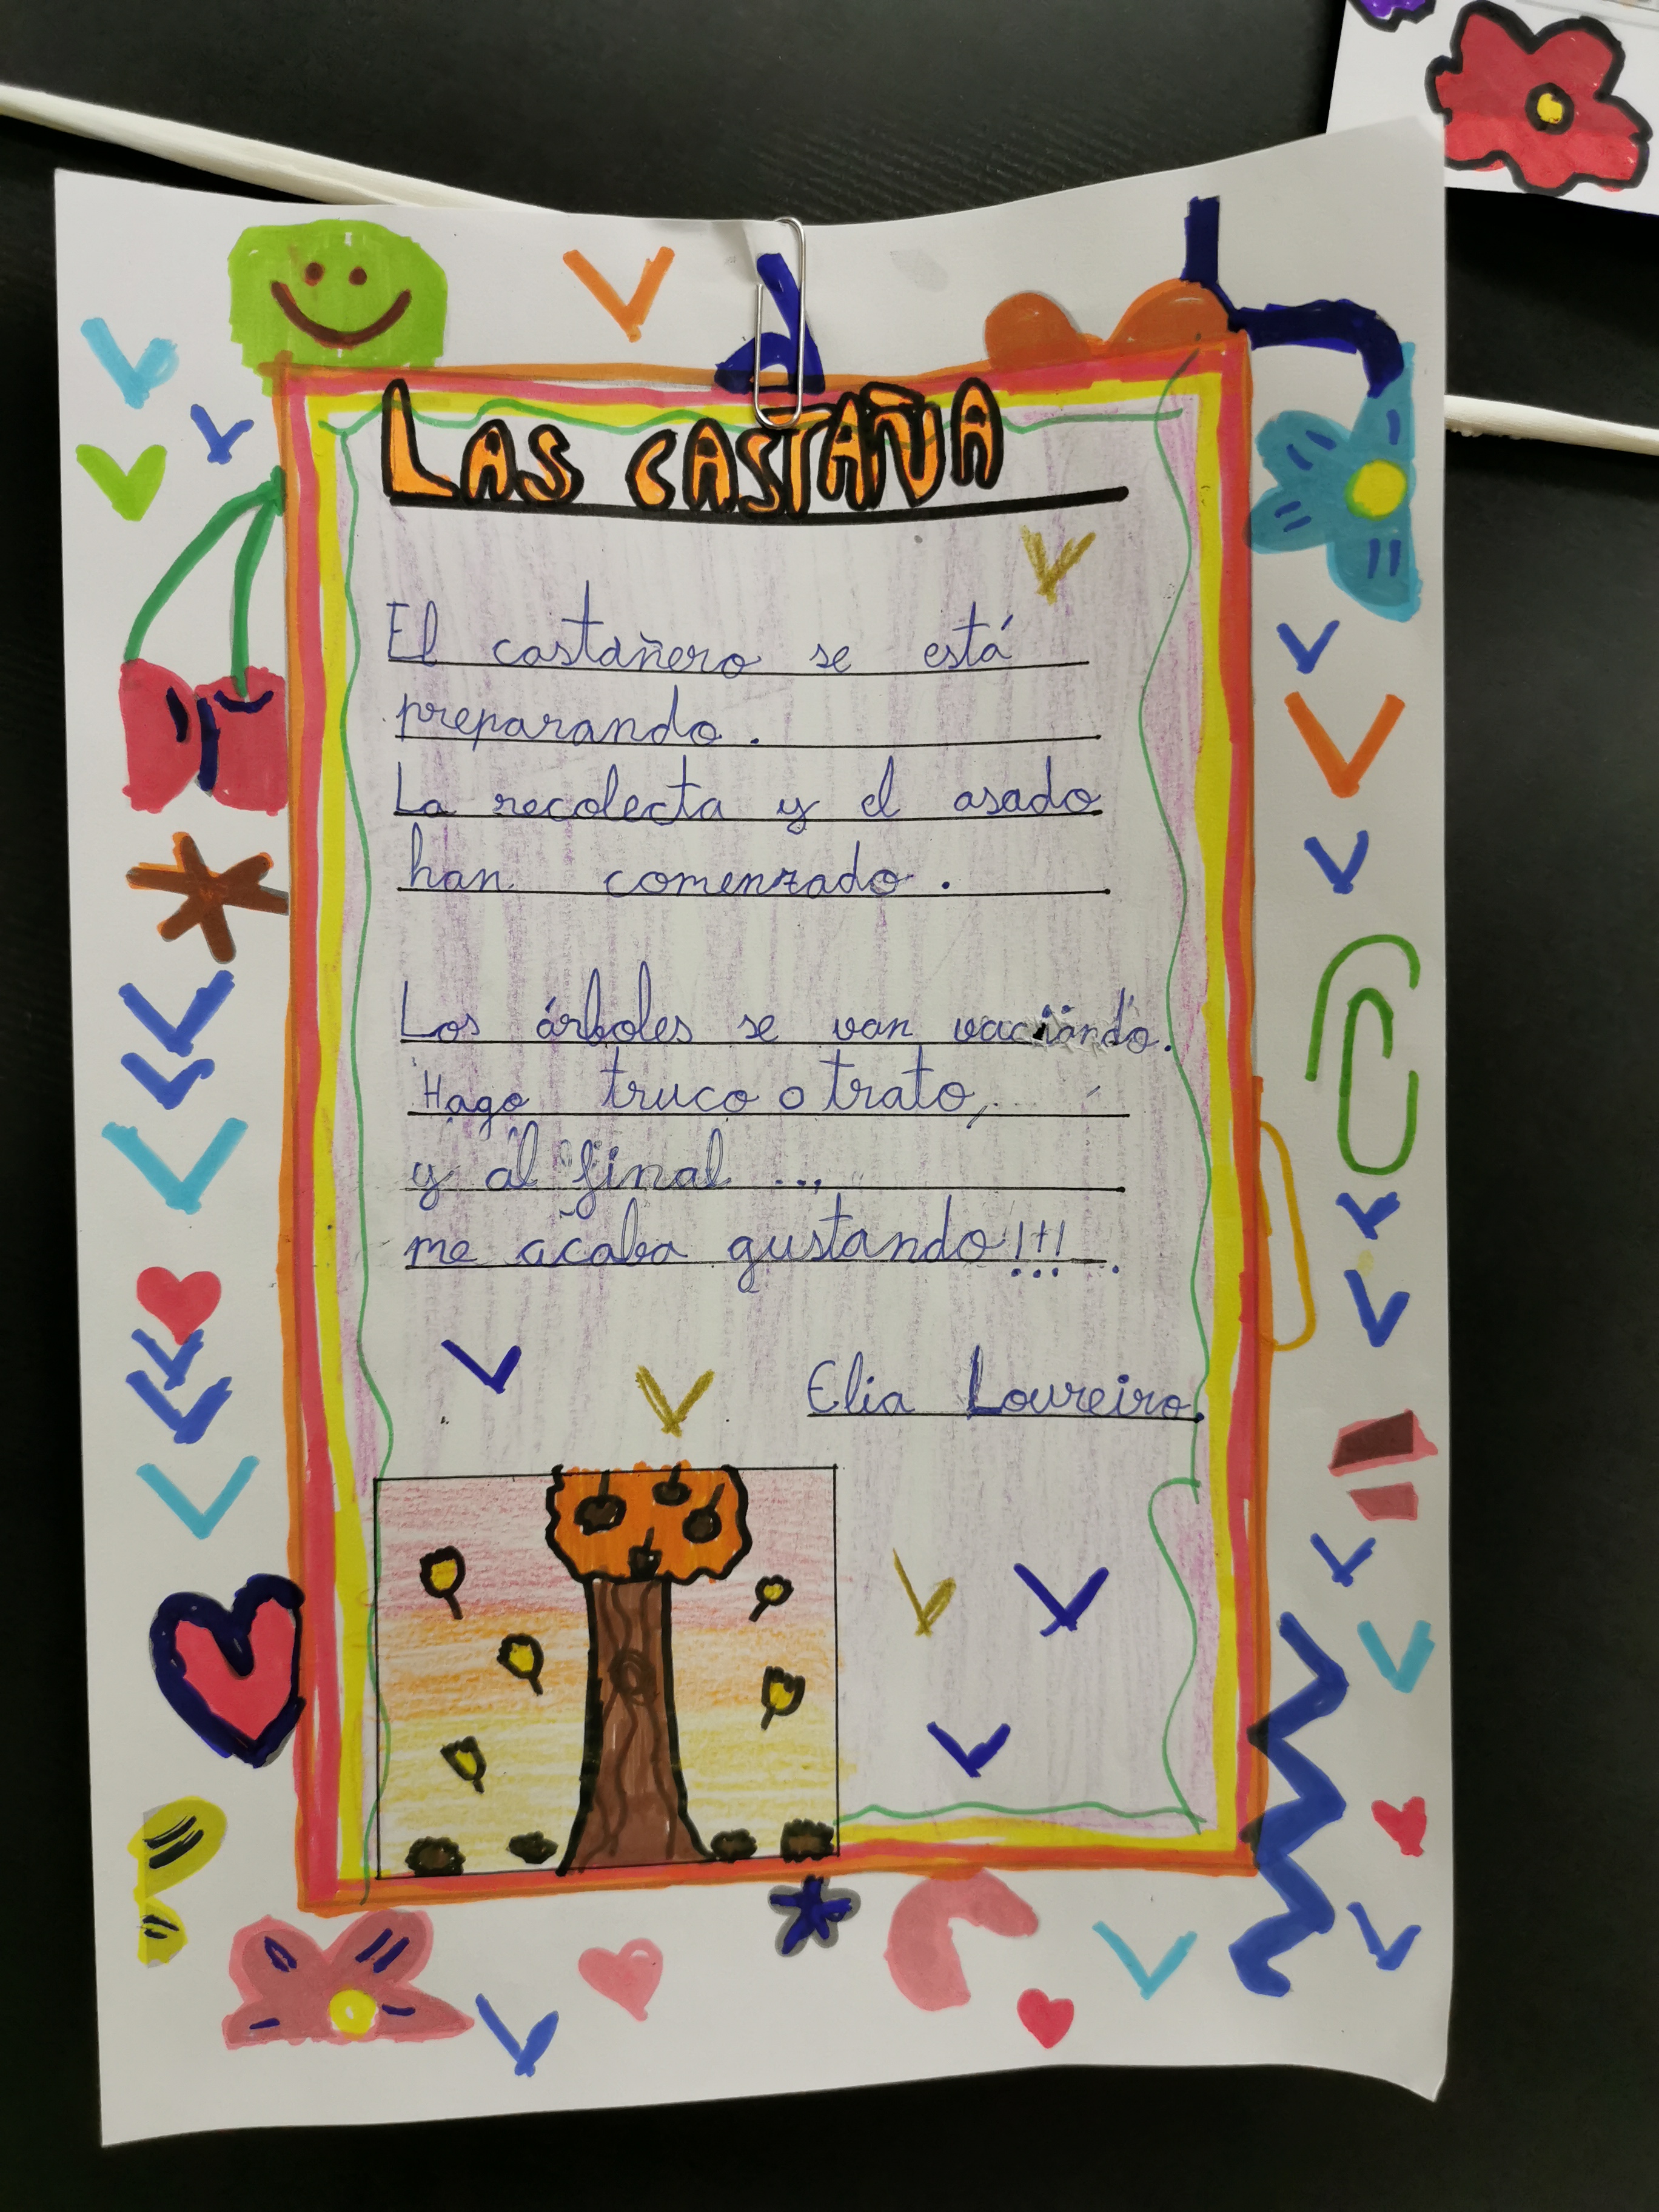 LAS CASTAÑA
El castañero se está
preparando.
La recolecta y el asado
han comenzado.
Los árboles se van vaciando.
Hago truco o trato,
y al final ...
me acaba gustando!!!
Elia Loureiro.